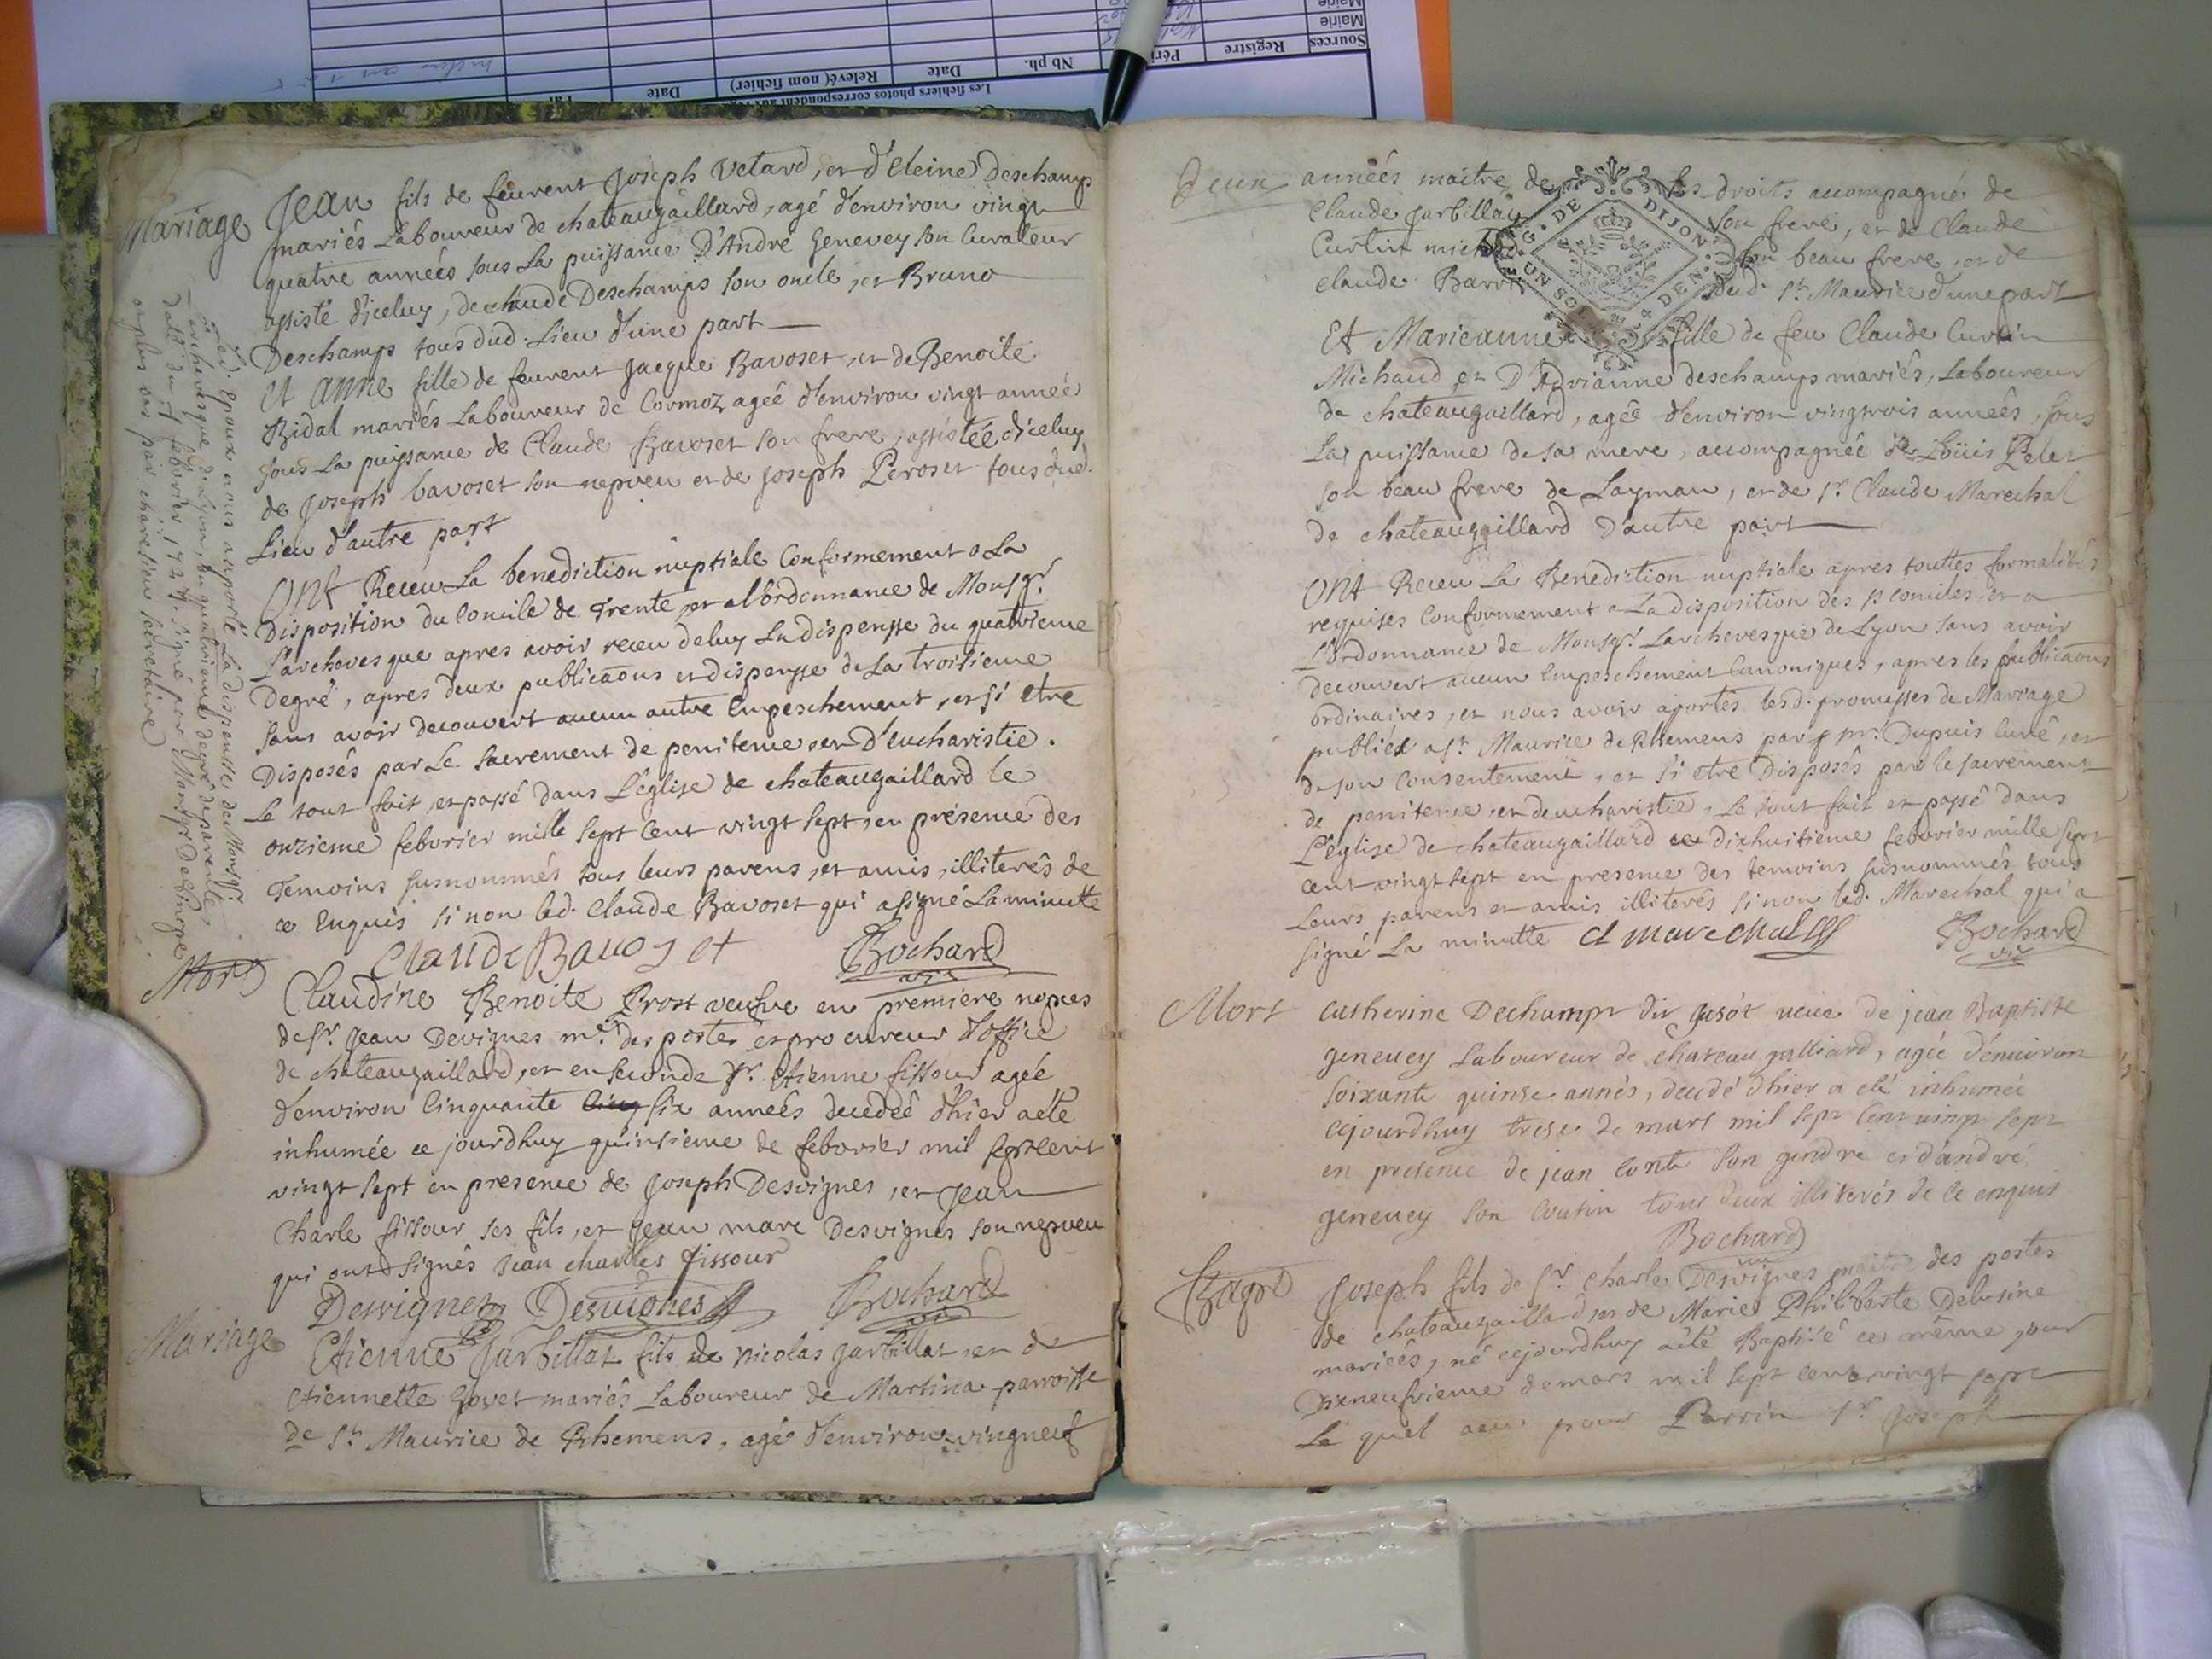 Les fichiers photos correspondent aux
Sources
Registre
Péri
Nb ph.
Date
Relevé (nom fichier)
Date
Par
Mairie
Mairie
Mariage
Jean fils de feuvent Joseph Vetard, et d'Eleine Deschamp
mariés Laboureur de chateaugaillard, agé d'environ vingt
quatre années sous La puissance D'André Genevey son Curateur
assisté d'iceluy, de claude Deschamps son oncle, et Bruno
Deschamps tous dud. Lieu d'une part
Et Anne fille de feuvent Jacque Bavoset, et de Benoite
Bidal mariés Laboureur de Cormoz agée d'environ vingt années
sous La puissance de Claude Bavoset son frere, assistée d'iceluy
de Joseph bavoset son nepveu et de Joseph Peroset tous dud.
Lieu d'autre part
Ont Receu La benediction nuptiale Conformement a La
Disposition du Concile de Trente, et a l'ordonnance de Monsgr.
L'archevesque apres avoir receu de luy La dispensse du quatrieme
Degré, apres deux publicaõns et dispensse de La troisieme
sans avoir decouvert aucun autre Empeschement, et si etre
Disposés par Le sacrement de penitence, et D'eucharistie.
Le tout fait, et passé dans L'eglise de chateaugaillard le
onzieme febvrier mille sept Cent vingt sept, en présence des
Temoins susnommés tous leurs parens, et amis, illiterés de
ce Enquis si non led. Claude Bavoset qui a signé La minutte
Claude Bavoset
Bochard
vic
Led. Epoux nous apporté La dispense de Monsgr.
L'archevesque de Lyon, du quatrieme degré de parenté,
Mort
Claudine Benoite Prost veufve en premiere nopces
de Sr. Jean Devignes me. des postes, et procureur d'office
de chateaugaillard, et en seconde Sr. Etienne fissour agée
d'environ Cinquante cinq six années decedée d'hier a été
inhumée ce jourdhuy quinsieme de febvrier mil sept cent
vingt sept en presence de Joseph Desvignes, et Jean
Charle fissour ses fils, et Jean marc Desvignes son nepveu
qui ont signés Jean charles fissour
Desvignes Desvignes Bochard
vic
Mariage
Etienne Jarbillat fils de Nicolas Jarbillat, et de
Etiennette Govet mariés Laboureur de Martina parroisse
de St. Maurice de Rhemens, agé d'environ vingneuf
Deux
années maitre de ses droits accompagné de
Claude Jarbillat son frere, et de Claude
Curtin mich son beau frere, et de
claude Barri dud. St. Maurice d'une part
G. DE DIJON
UN SOL DEN
Et Marieanne fille de feu Claude Curtin
Michaud et D'Adrianne deschamps mariés, Laboureur
de chateaugaillard, agée d'environ vingtrois années, sous
La puissance de sa mere, accompagnée de Loüis Pelet
son beau frere de Layman, et de Sr. Claude Marechal
de chateaugaillard D'autre part
Ont Receu La Benediction nuptiale apres touttes formalités
requises Conformement a La disposition des St conciles, et a
L'ordonnance de Monsgr. L'archevesque de Lyon sans avoir
decouvert aucun Empeschement Canoniques, apres les publicaõns
ordinaires, et nous avoir aportés lesd. promesses de Mariage
publiés a St. Maurice de Rhemens par Mr. Dupuis Curé, et
de son Consentement, et si etre Disposés par le sacrement
de penitence, et d'eucharistie, Le tout fait et passé dans
L'eglise de chateaugaillard ce dixhuitieme febvrier mille sept
cent vingt sept en presence des temoins susnommés tous
Leurs parens et amis illiterés si non led. Marechal qui a
signé La minutte Cl marechal
Bochard
vic
Mort
Catherine Dechamps dit Jasot veue de jean Baptiste
genevey Laboureur de chateau galliard, agée d'environ
soixante quinse annés, decedé d'hier a eté inhumée
cejourdhuy trese de mars mil sept Cent vingt sept
en presence de jean Conte son gendre et d'andré
genevey son Cousin tous deux illiterés de ce enquis
Bochard
vic
Bapt
Joseph fils de Sr. Charle Desvignes maitre des postes
de chateaugaillard, et de Marie Philiberte Debosine
mariées, né cejourdhuy a été Baptisé ce même jour
Dixneufvieme de mars mil sept cent vingt sept
Le quel a eu pour Parrin Sr Joseph